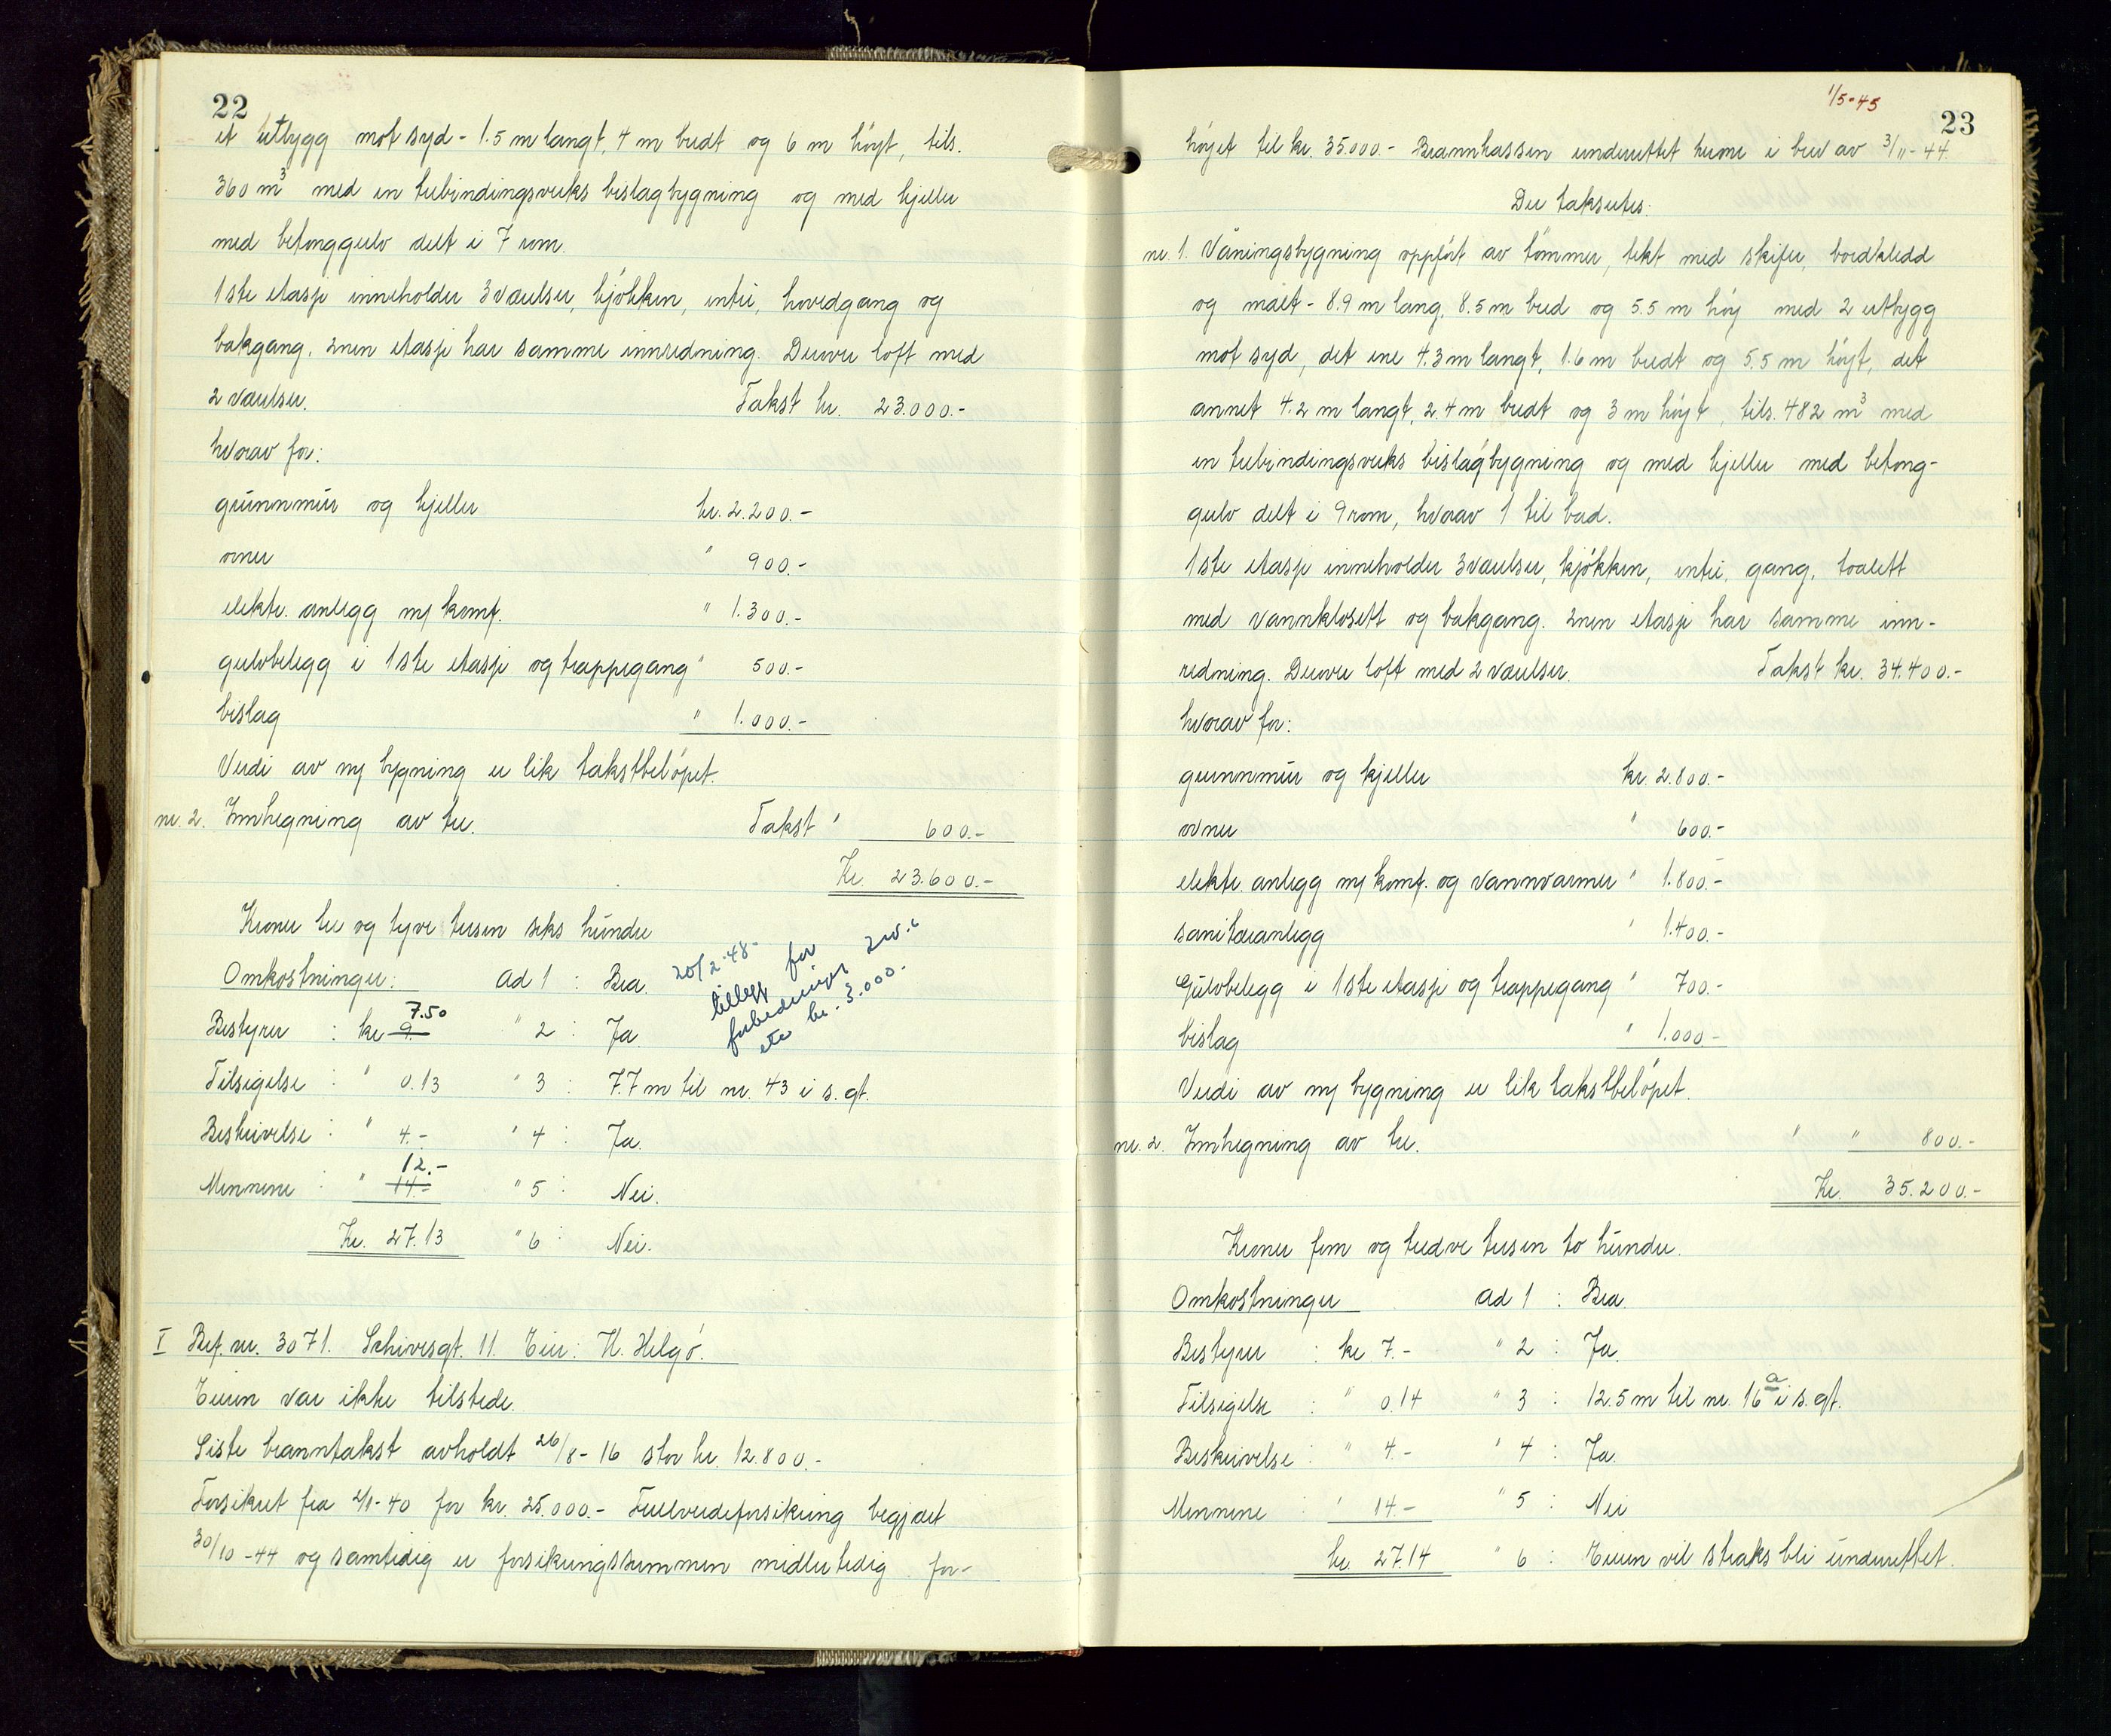 22
et utbygg mot syd - 1.5 m langt, 4 m bredt og 6 m høyt, tils.
360 m³ med en trebindingsverks bislagbygning og med kjeller
med betonggulv delt i 7 rom.
1ste etasje inneholder 3 værelser, kjøkken, entré, hovedgang og
bakgang. 2nen etasje har samme innredning. Derover loft med
2 værelser. Takst kr. 23.000.-
hvorav for:
grunnmur og kjeller kr. 2.200.-
ovner " 900.-
elektr. anlegg m/ komf. " 1.300.-
gulvbelegg i 1ste etasje og trappegang " 500.-
bislag " 1.000.-
Verdi av ny bygning er lik takstbeløpet.
nr. 2. Innhegning av tre. Takst " 600.-
Kr. 23.600.-
Kroner tre og tyve tusen seks hundre
Omkostninger: ad 1 : Bra.
20/2-48- tillegg for
forbedringer
etc kr. 3.000.-
Bestyrer : kr 9.- 7.50 " 2 : Ja.
Tilsigelse : " 0.13 " 3 : 7.7 m til nr. 43 i s. gt.
Beskrivelse : " 4.- " 4 : Ja.
Mennene : " 14.- 12.- " 5 : Nei.
Kr. 27.13 " 6 : Nei.
I Bef. nr. 3071. Schivesgt. 11. Eier: H. Helgø.
Eieren var ikke tilstede.
Siste branntakst avholdt 26/8-16 stor kr. 12.800.-
Forsikret fra 2/1-40 for kr. 25.000.- Fullverdeforsikring begjært
30/10-44 og samtidig er forsikringssummen midlertidig for-
1/5-45
23
høyet til kr. 35.000.- Brannkassen underrettet herom i brev av 3/11-44
Der takseres:
nr. 1. Våningsbygning oppført av tømmer, tekt med skifer, bordkledd
og malt - 8.9 m lang, 8.5 m bred og 5.5 m høy med 2 utbygg
mot syd, det ene 4.3 m langt, 1.6 m bredt og 5.5 m høyt, det
annet 4.2 m langt, 2.4 m bredt og 3 m høyt, tils. 482 m³ med
en trebindingsverks bislagbygning og med kjeller med betong-
gulv delt i 9 rom, hvorav 1 til bad.
1ste etasje inneholder 3 værelser, kjøkken, entré, gang, toalett
med vannklosett og bakgang. 2nen etasje har samme inn-
redning. Derover loft med 2 værelser. Takst kr. 34.400.-
hvorav for:
grunnmur og kjeller kr. 2.800.-
ovner " 600.-
elektr. anlegg m/ komf. og vannvarmer " 1.800.-
sanitæranlegg " 1.400.-
Gulvbelegg i 1ste etasje og trappegang " 700.-
bislag " 1.000.-
Verdi av ny bygning er lik takstbeløpet.
nr. 2. Innhegning av tre. " " 800.-
Kr. 35.200.-
Kroner fem og tredve tusen to hundre.
Omkostninger ad 1 : Bra.
Bestyrer : kr 7.- " 2 : Ja.
Tilsigelse : " 0.14 " 3 : 12.5 m til nr. 16 a i s. gt.
Beskrivelse : " 4.- " 4 : Ja.
Mennene : " 14.- " 5 : Nei
kr. 27.14 " 6 : Eieren vil straks bli underrettet.